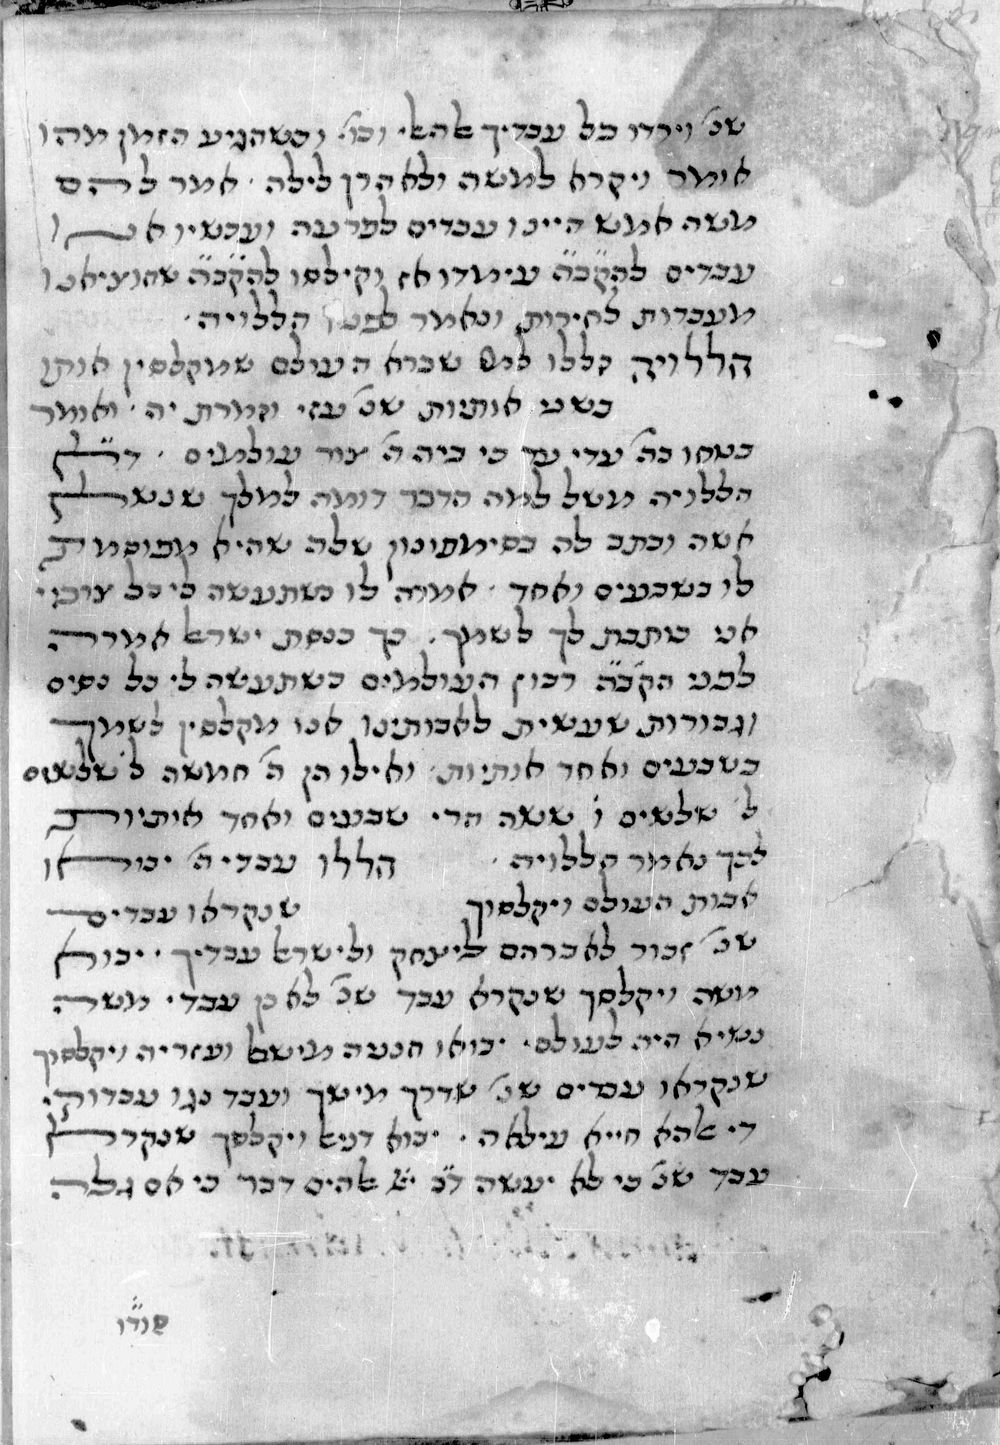 שנ׳ וירדו כל עבדיך אלה אלי וכו׳ וכשהגיע הזמן מהו
אומר ויקרא למשה ולאהרן לילה · אמר להם
משה אמש היינו עבדים לפרעה ועכשיו אנו
עבדים להקב״ה עימדו אז וקילסו להקב״ה שהוציאנו
מעבדות לחירות ונאמר לפניו הללויה ·
הללויה קלסו למי שברא העולם שמקלסין אותו
בשני אותיות שנ׳ עזי וזמרת יה · ואומר
בטחו בה׳ עדי עד כי ביה ה׳ צור עולמים · ד״א
הללויה משל למה הדבר דומה למלך שנשא
אשה וכתב לה בסימפונון שלה שהיא מפוסמת
לו בשבעים ואחד · אמרה לו כשתעשה לי כל צרכיי
אני כותבת לך לשמך · כך כנסת ישראל אמרה
לפני הקב״ה רבון העולמים כשתעשה לי כל נסים
וגבורות שעשית לאבותינו אנו מקלסין לשמך
בשבעים ואחד אותיות · ואילו הן ה׳ חמשה ל׳ שלשים
ל׳ שלשים ו׳ ששה הרי שבעים ואחד אותיות
לכך נאמר הללויה · הללו עבדי ה׳ יבואו
אבות העולם ויקלסוך שנקראו עבדים
שנ׳ זכור לאברהם ליצחק ולישראל עבדיך · יבוא
משה ויקלסך שנקרא עבד שנ׳ לא כן עבדי משה
נשיא היה לעולם · יבואו חנניה מישאל ועזריה ויקלסוך
שנקראו עבדים שנ׳ שדרך מישך ועבד נגו עבדוהי
די אלהא חייא עילאה · יבוא דניאל ויקלסך שנקרא
עבד שנ׳ כי לא יעשה אלהים דבר כי אם גלה
סודו